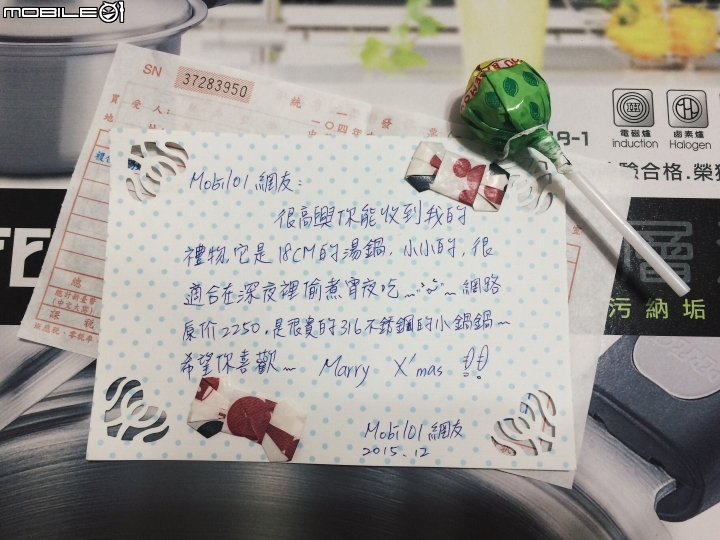 MOBILE01
SN 37283950
統一發票
買受人:
一〇四年
電磁爐
induction
鹵素爐
Halogen
8-1
驗合格.榮
層
污納垢
Mobil01 網友:
很高興你能收到我的
禮物,它是18CM的湯鍋,小小的,很
適合在深夜裡偷煮宵夜吃~~網路
原价2250.是很貴的316不銹鋼的小鍋鍋~
希望你喜歡~ Marry X'mas !!
Mobil01 網友
2015.12
總
總計新臺幣
(中文大寫)
課稅